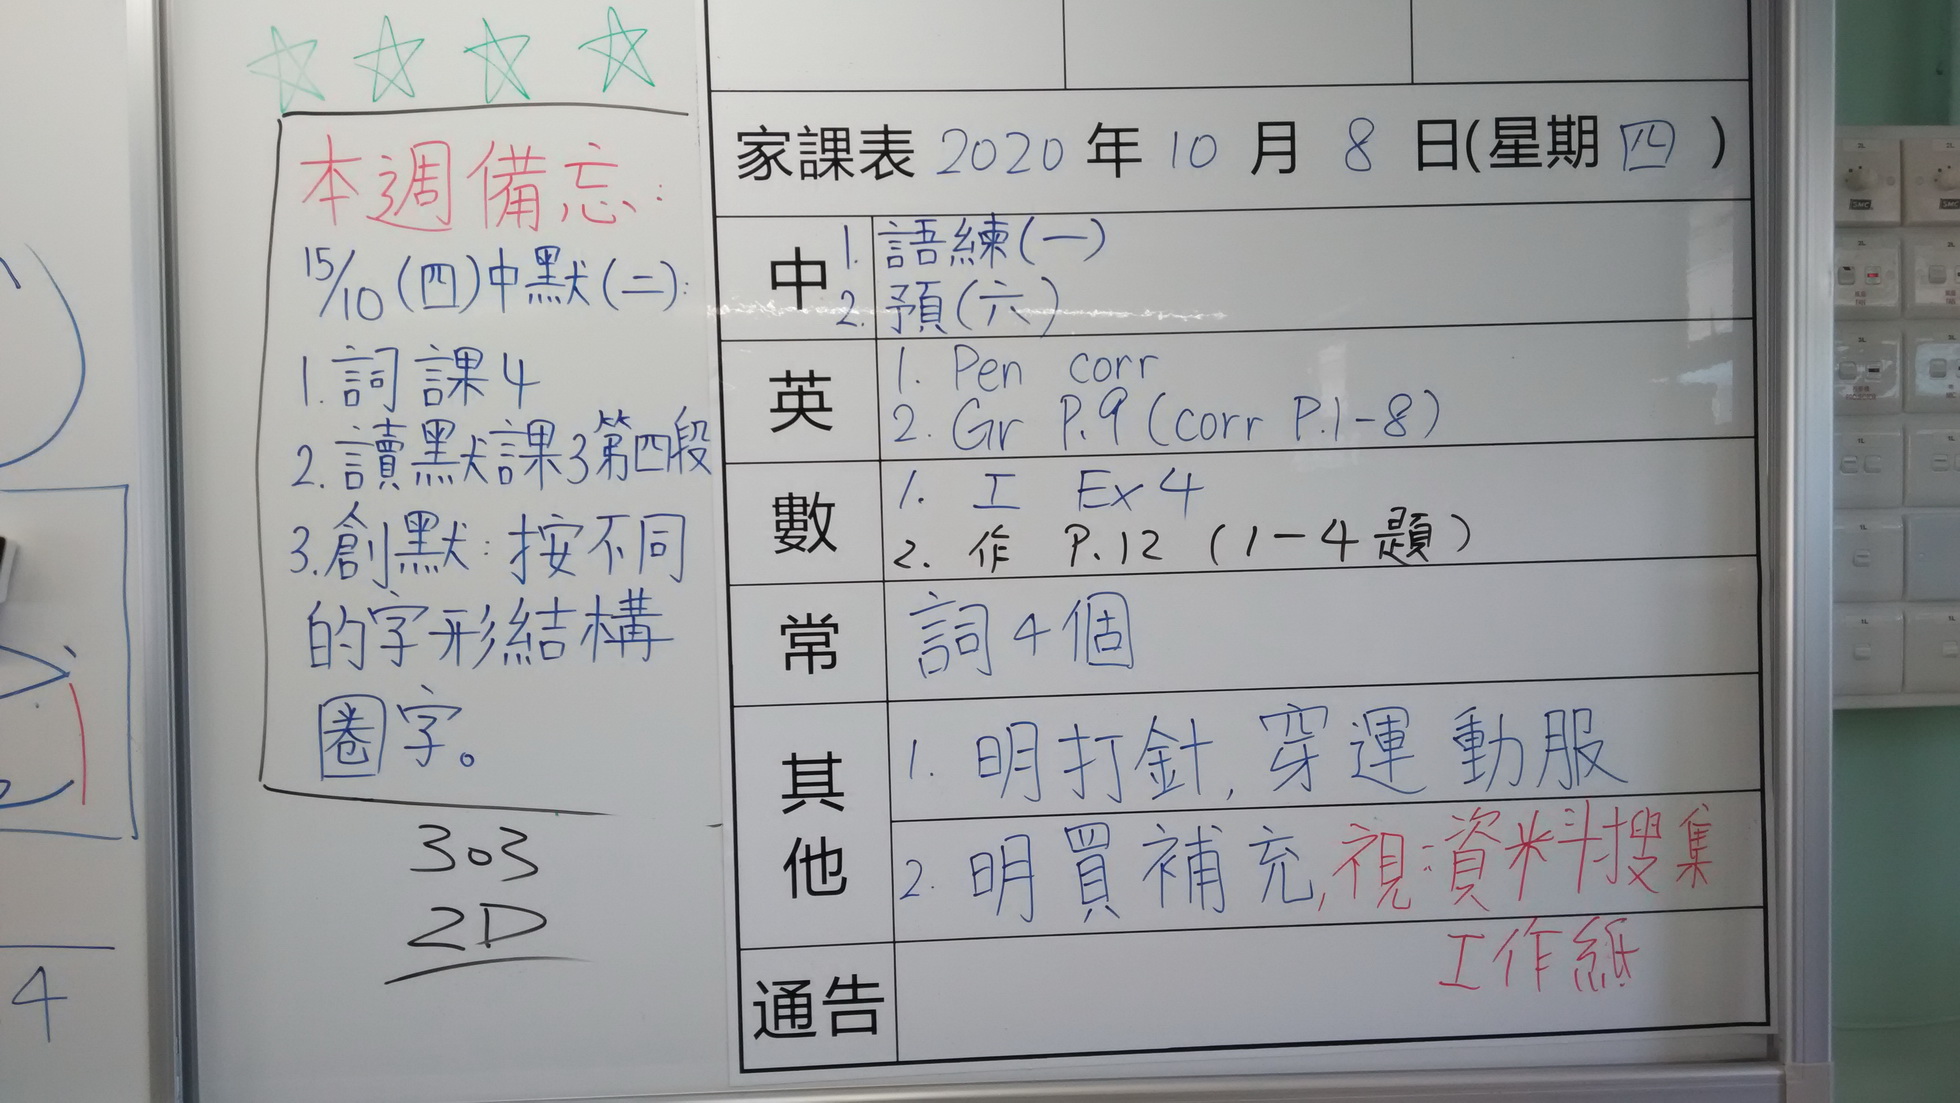 本週備忘:
15/10 (四)中默(二):
1. 詞課4
2. 讀默課3第四段
3. 創默:按不同
的字形結構
圈字。
303
2D
家課表 2020 年 10 月 8 日(星期 四 )
中
1. 語練(一)
2. 預(六)
英
1. Pen corr
2. Gr P.9 (corr P.1-8)
數
1. 工 Ex 4
2. 作 P.12 (1-4題)
常
詞4個
其他
1. 明打針, 穿運動服
2. 明買補充, 視:資料搜集
工作紙
通告
4